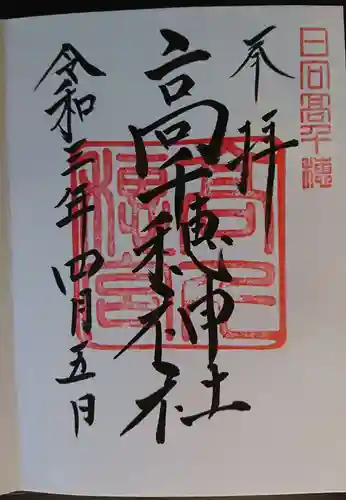 日向高千穂
奉拝
高千穂神社
令和三年四月五日